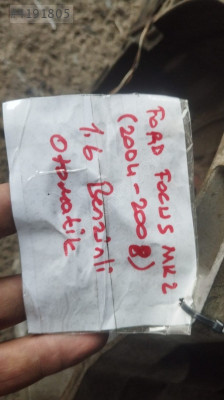 191805
FOAD FOCUS MK2
(2004-2008)
1.6 Benzinli
Otomatik